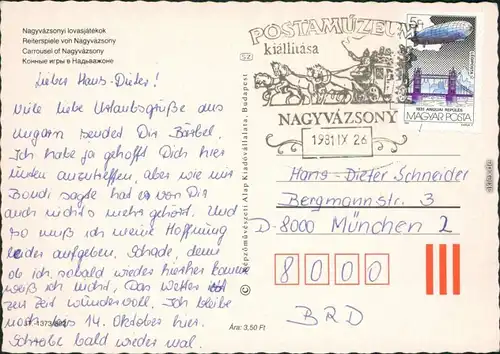 Nagyvázsonyi lovasjátékok
Reiterspiele von Nagyvázsony
Carrousel of Nagyvázsony
Конные игры в Надьважоне
Lieber Hans-Dieter!
Viele liebe Urlaubsgrüße aus
Ungarn sendet Dir Bärbel.
Ich habe ja gehofft Dich hier
anzutreffen, aber wie mir
Bandi sagte hat er von Dir
auch nichts mehr gehört. Und
so muß ich meine Hoffnung
leider aufgeben. Schade, denn
ob ich sobald wieder hierher komme
weiß ich nicht. Das Wetter ist
zur Zeit wundervoll. Ich bleibe
noch bis 14. Oktober hier.
Schreibe bald wieder mal.
Ára: 3,50 Ft
© Képzőművészeti Alap Kiadóvállalata, Budapest
POSTAMÚZEUM
kiállítása
NAGYVÁZSONY
1981 IX 26
5 Ft
1931 ANGLIAI REPÜLÉS
MAGYAR POSTA
Hans-Dieter Schneider
Bergmannstr. 3
D-8000 München 2
8000
BRD